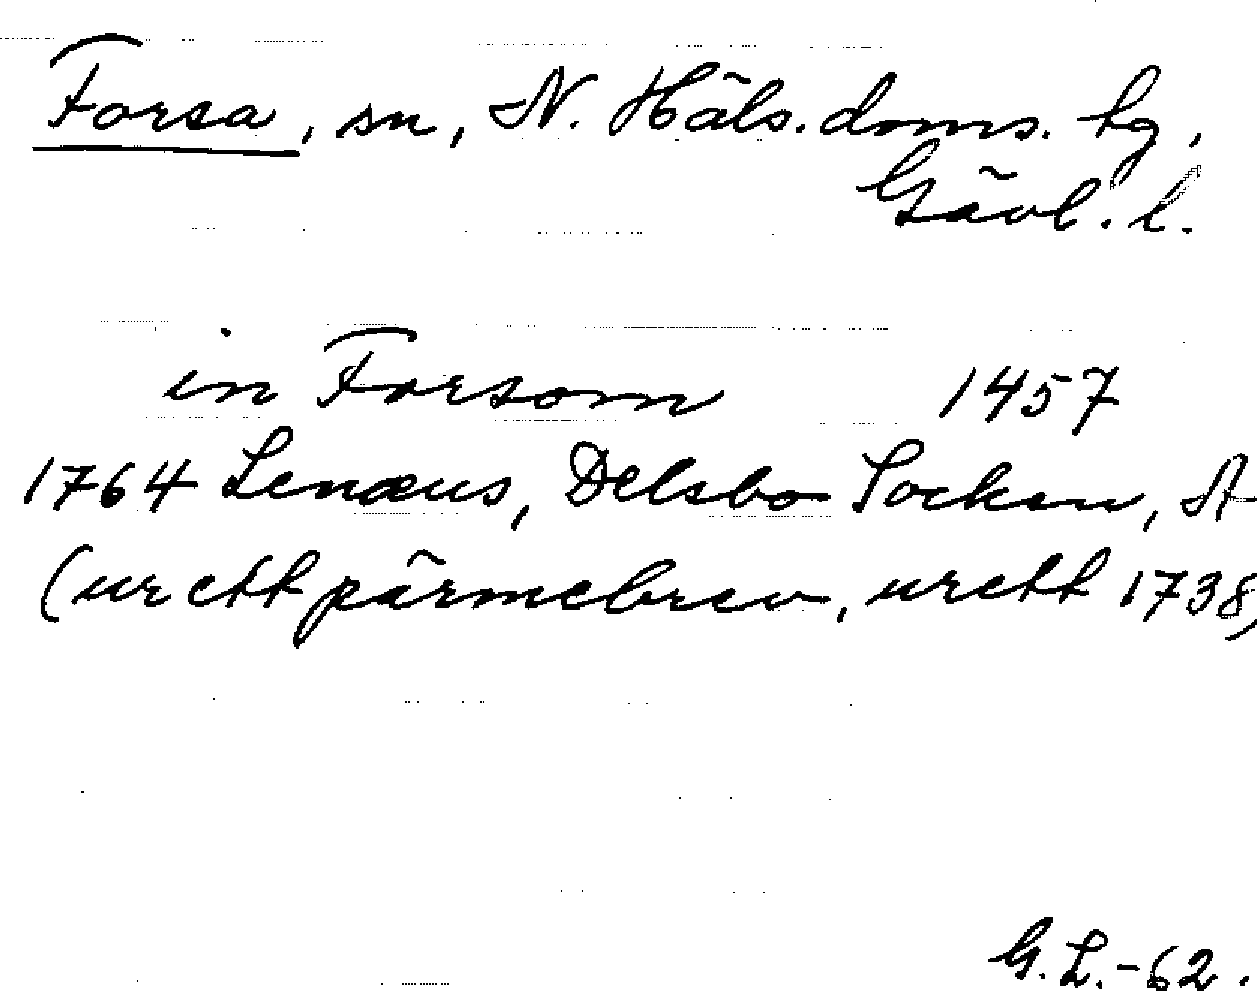 Forsa, sn, N. Häls. doms. hg,
Gävl. l.
in Forsom 1457
1764 Lenæus, Delsbo Socken, A
(ur ett pärmebrev, ur ett 1738,
G. L. -62.